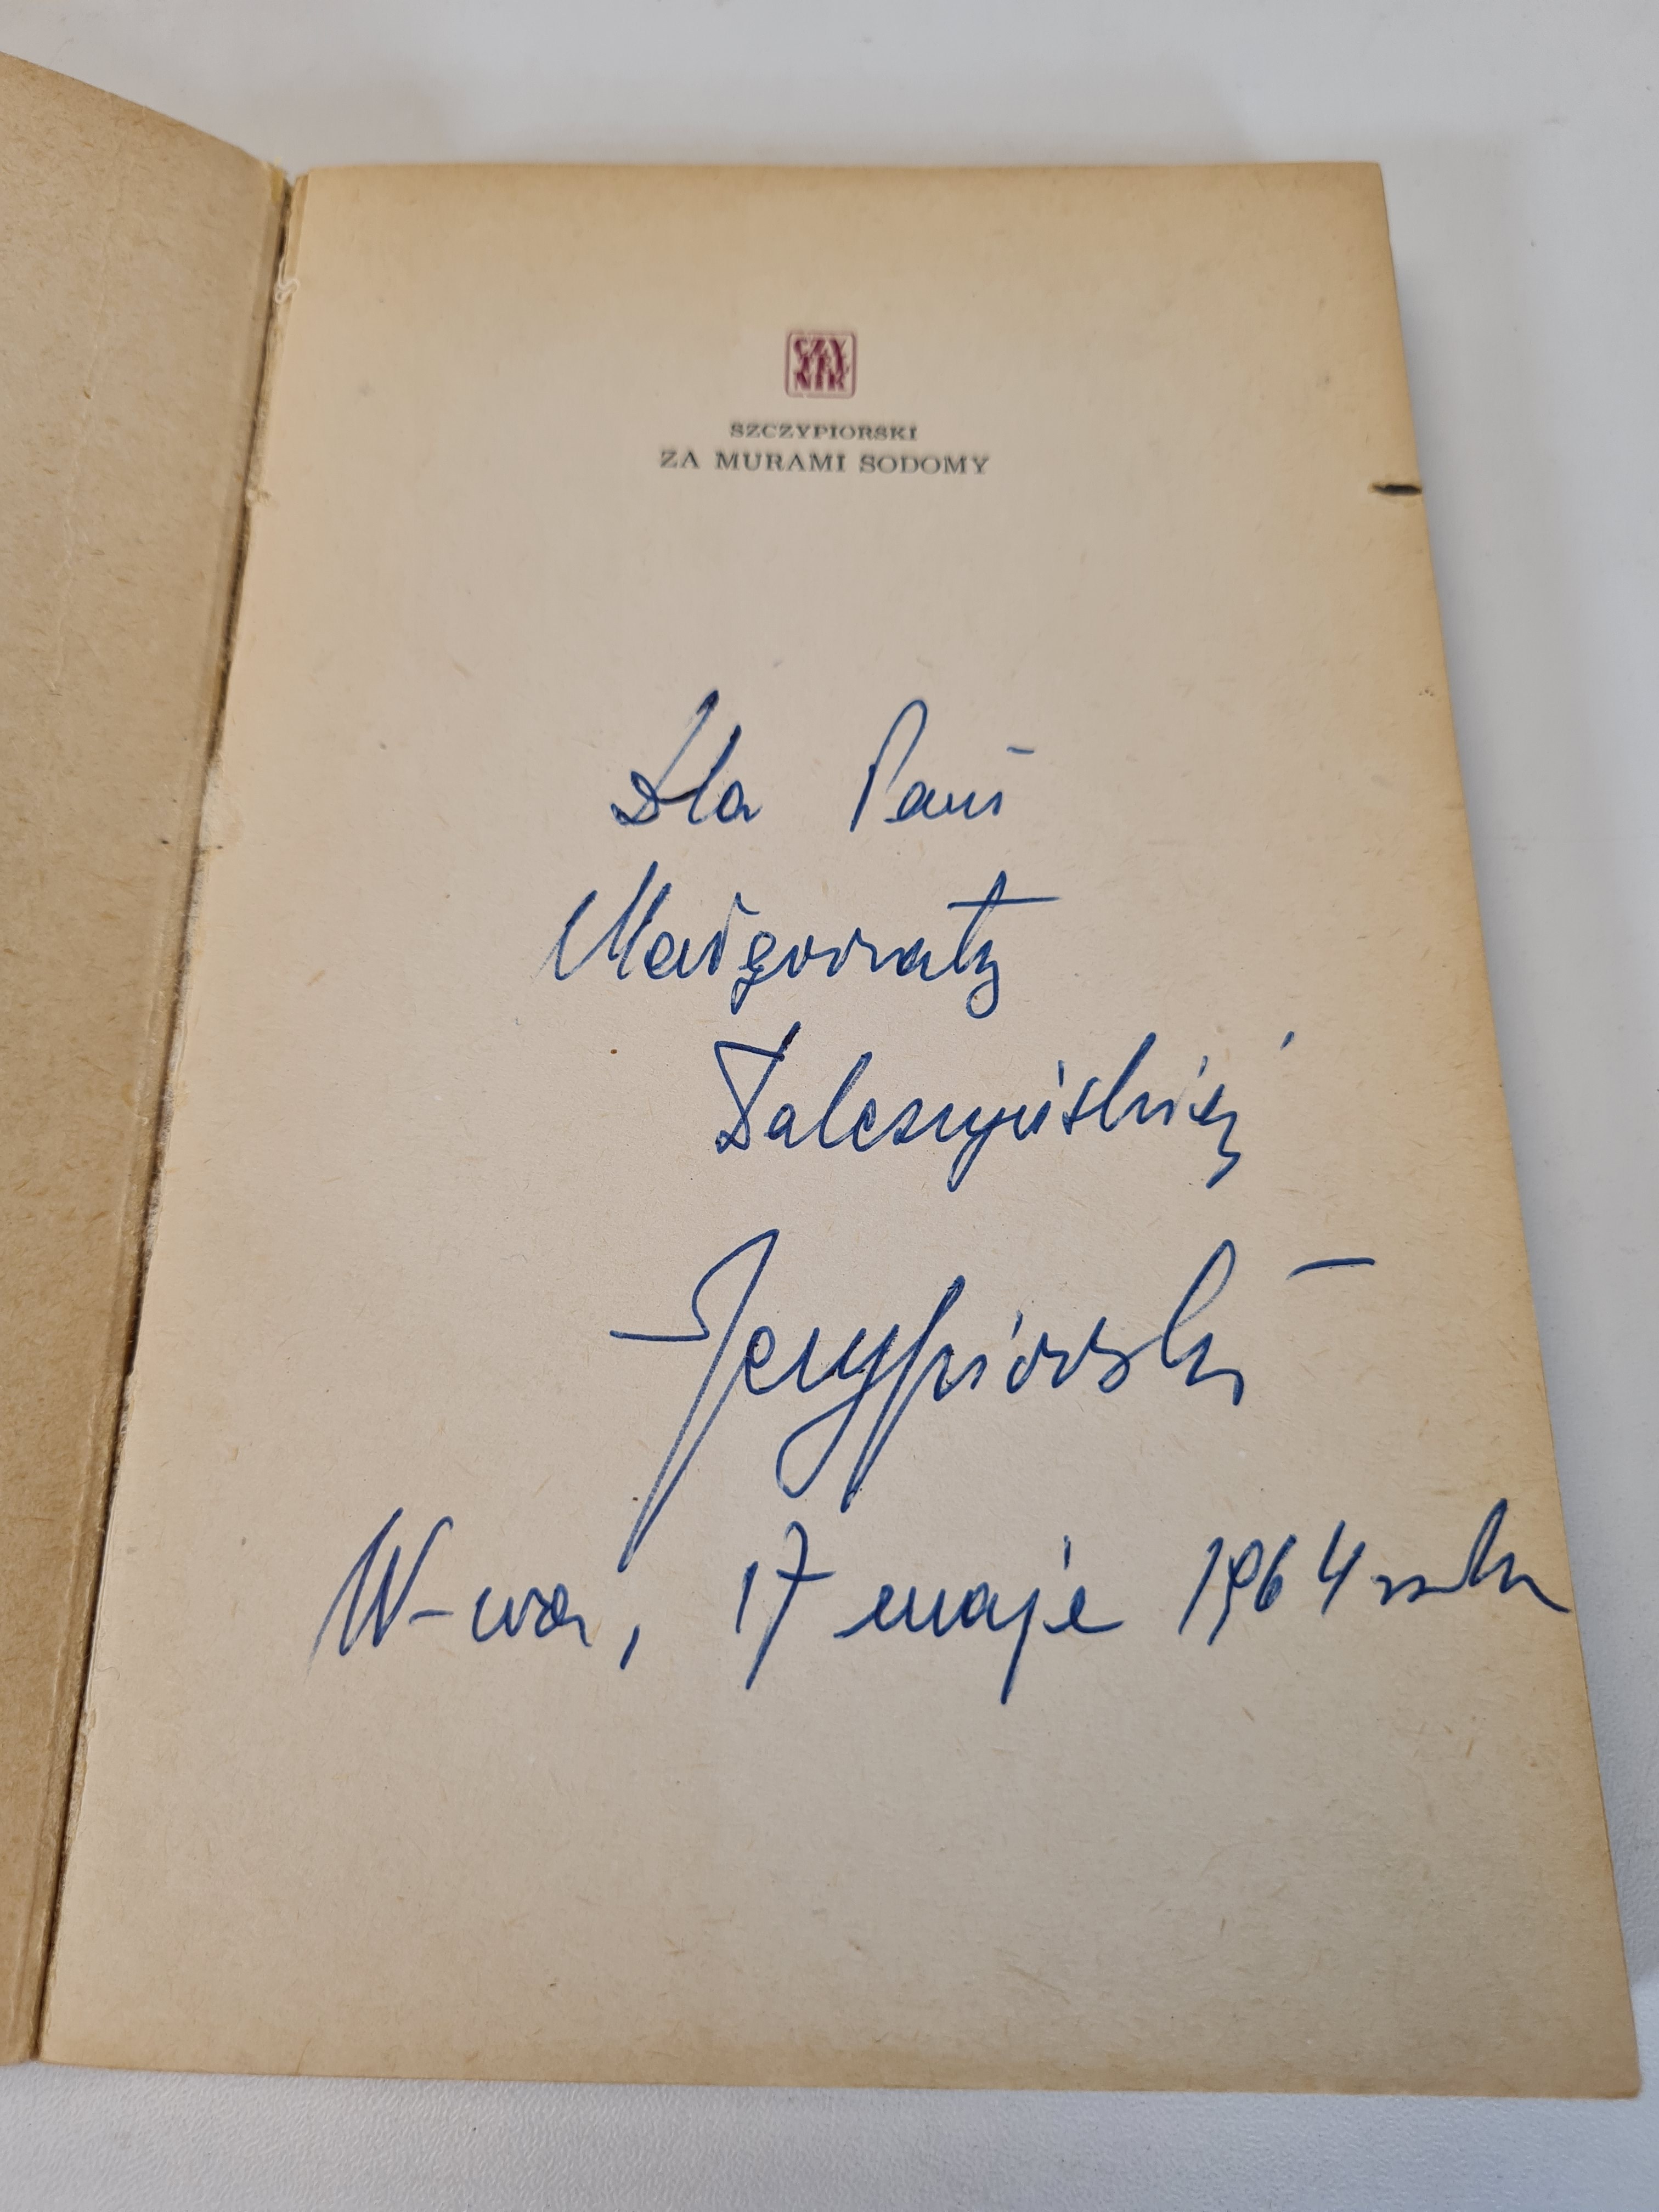 CZY
TEL
NIK
SZCZYPIORSKI
ZA MURAMI SODOMY
Dla Pani
Małgorzaty
Zalczyńskiej
Szczypiorski
W-wa, 17 maja 1964 roku